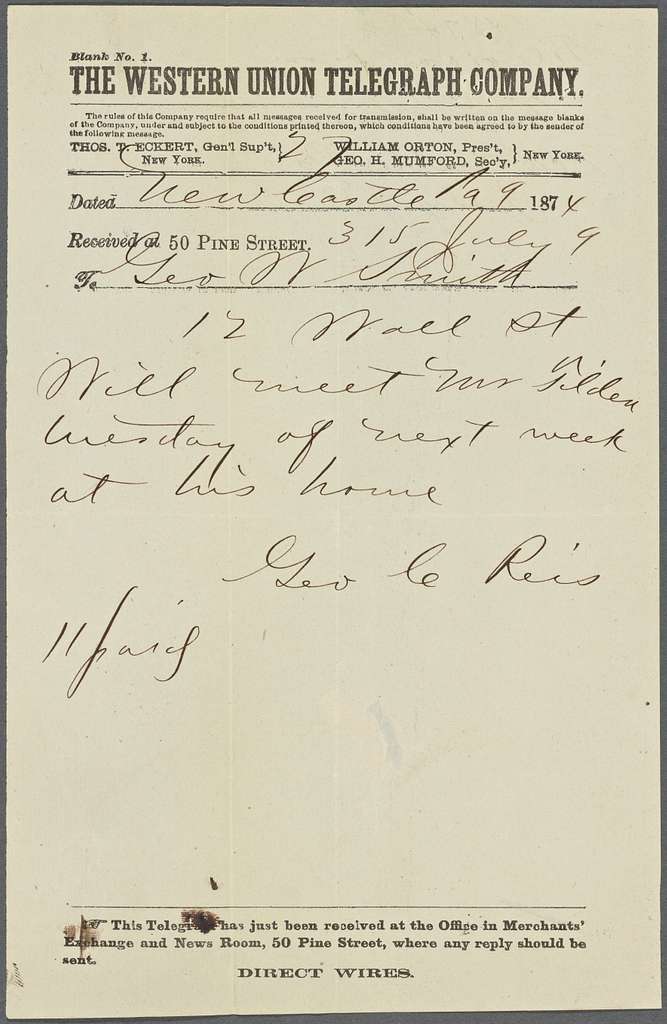 Blank No. 1.
THE WESTERN UNION TELEGRAPH COMPANY.
The rules of this Company require that all messages received for transmission, shall be written on the message blanks
of the Company, under and subject to the conditions printed thereon, which conditions have been agreed to by the sender of
the following message.
THOS. T. ECKERT, Gen'l Sup't, } WILLIAM ORTON, Pres't, }
NEW YORK. GEO. H. MUMFORD, Sec'y, } NEW YORK.
Dated New Castle Pa 9 1874
Received at 50 PINE STREET. 315 July 9
To Geo W Smith
12 Wall St
Will meet Mr Tilden
tuesday of next week
at his home
Geo C Reis
11 paid
This Telegram has just been received at the Office in Merchants'
Exchange and News Room, 50 Pine Street, where any reply should be
sent.
DIRECT WIRES.